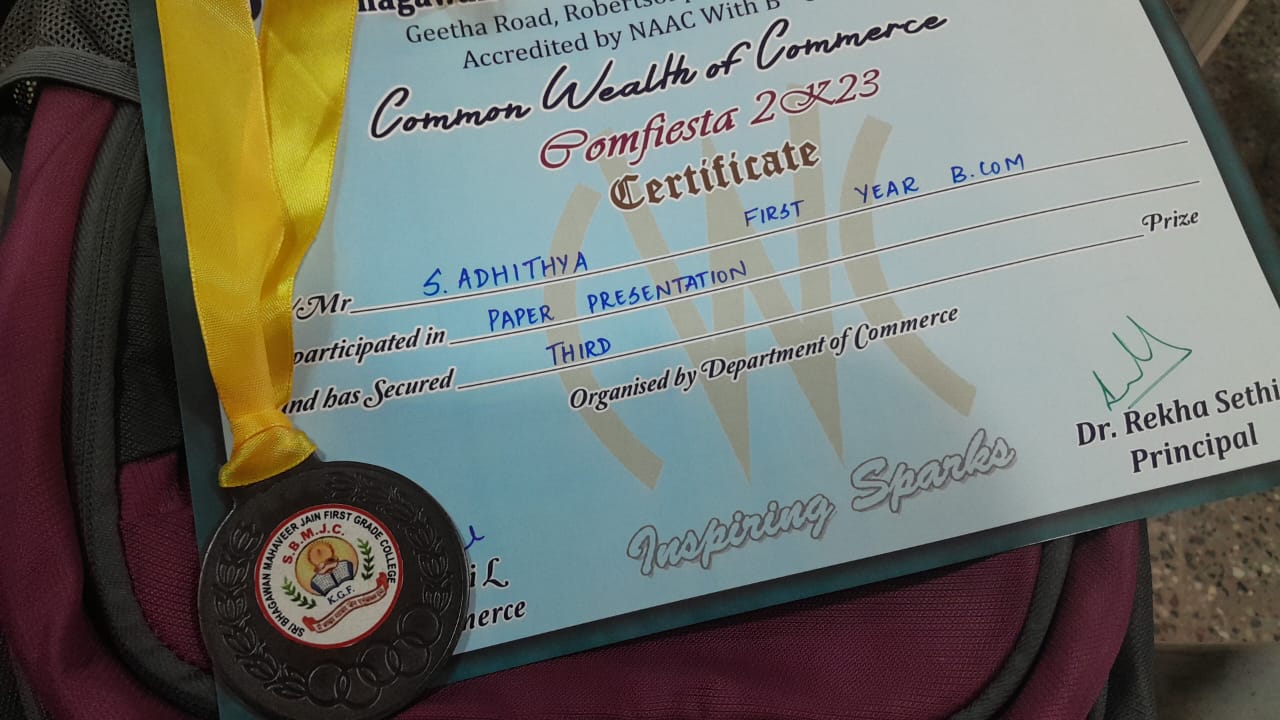 Geetha Road,
Accredited by NAAC With B
Common Wealth of Commerce
Comfiesta 2K23
Certificate
/Mr S. ADHITHYA FIRST YEAR B.COM
participated in PAPER PRESENTATION
and has Secured THIRD Prize
Organised by Department of Commerce
Dr. Rekha Sethi
Principal
Inspiring Sparks
i L
merce
SRI BHAGAWAN MAHAVEER JAIN FIRST GRADE COLLEGE
S.B.M.J.C.
K.G.F.